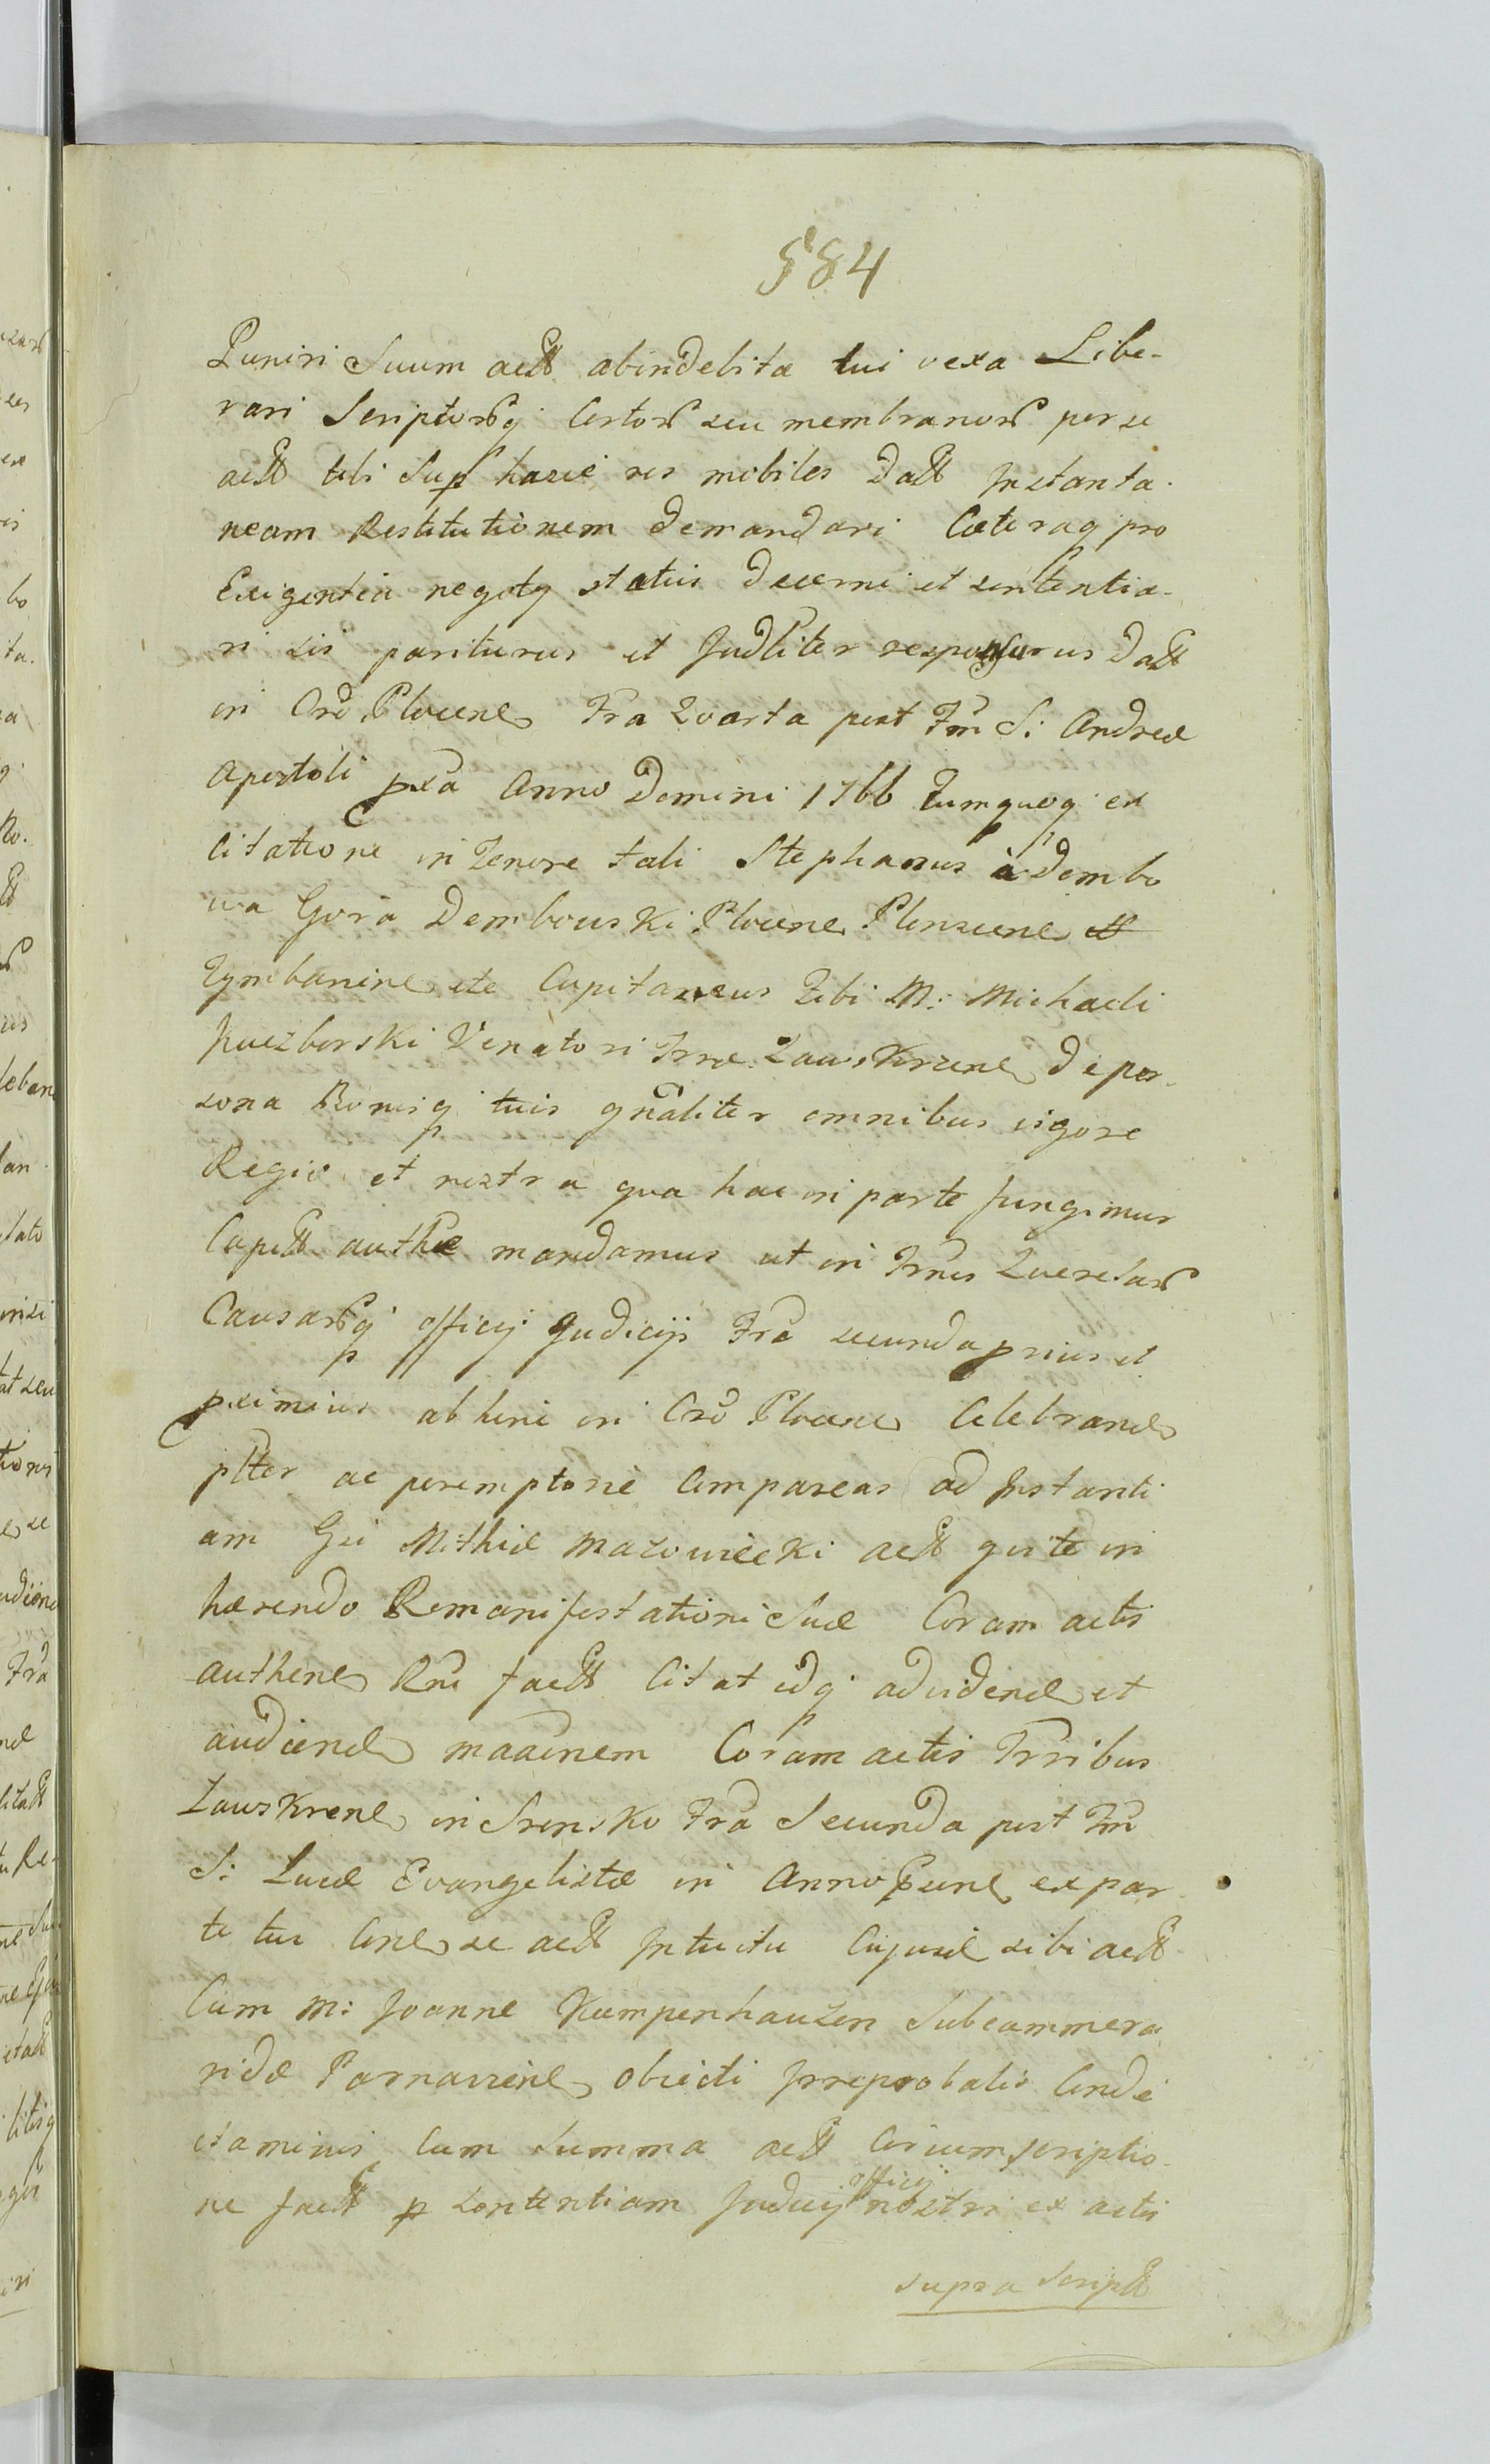 584
Puniri Suum actt abindebita tui vexa Libe-
rari Scriptorq certor seu membranor per se
actt tibi Sup hasce res mobiles Datt Instanta-
neam Restitutionem demandari Caeteraq pro
Exigentia negoty status decerni et sententia-
ri sis pariturus et Judliter responsurus Datt
in Cro Plocen Fra Quarta post Fm S: Andreae
Apostoli pxa Anno Domini 1766 Tumquoq ex
Citatione in Tenore tali Stephanus à Dembo
wa Gora Dembowski Plocen Plonscen
Tymbarinen etc Capitaneus Tibi M: Michaeli
Kuczborski Venatori Trrae Zawskrzen de per-
sona Bonisq tuis gnaliter omnibus vigore
Regia et nostra qua hac in parte fungimur
Capitt authae mandamus ut in Trnis Querelar
Causarq officij Judicijs Fra secunda prius et
pximius ab hinc in Cro Plocen Celebrand
pltter ac peremptorie Compareas ad Instanti
am Gsi Mathiae Mazowiecki actt qui te in
haerendo Remanifestationi Suae Coram actis
authen Rm factt Citat idq advidend et
audiend maanem Coram actis Trribus
Zawskren in Srensko Fra Secunda post Fm
S: Lucae Evangelistae in Anno Psenl ex par
te tui Cone se actt Intuitu Cujusd sibi actt
Cum M: Joanne Kampenhauzen Subcammera
ridae Parnavien objecti Irreprobatis Conde
staminis Cum Summa actt Circumscriptio-
ne factt p Sententiam Judicij officij nostri ex actis
supra Scriptt